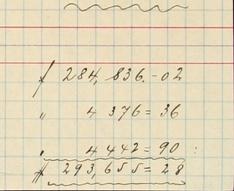 # 284,836.-02
" 4376=36
" 4442=90
# 293,655=28